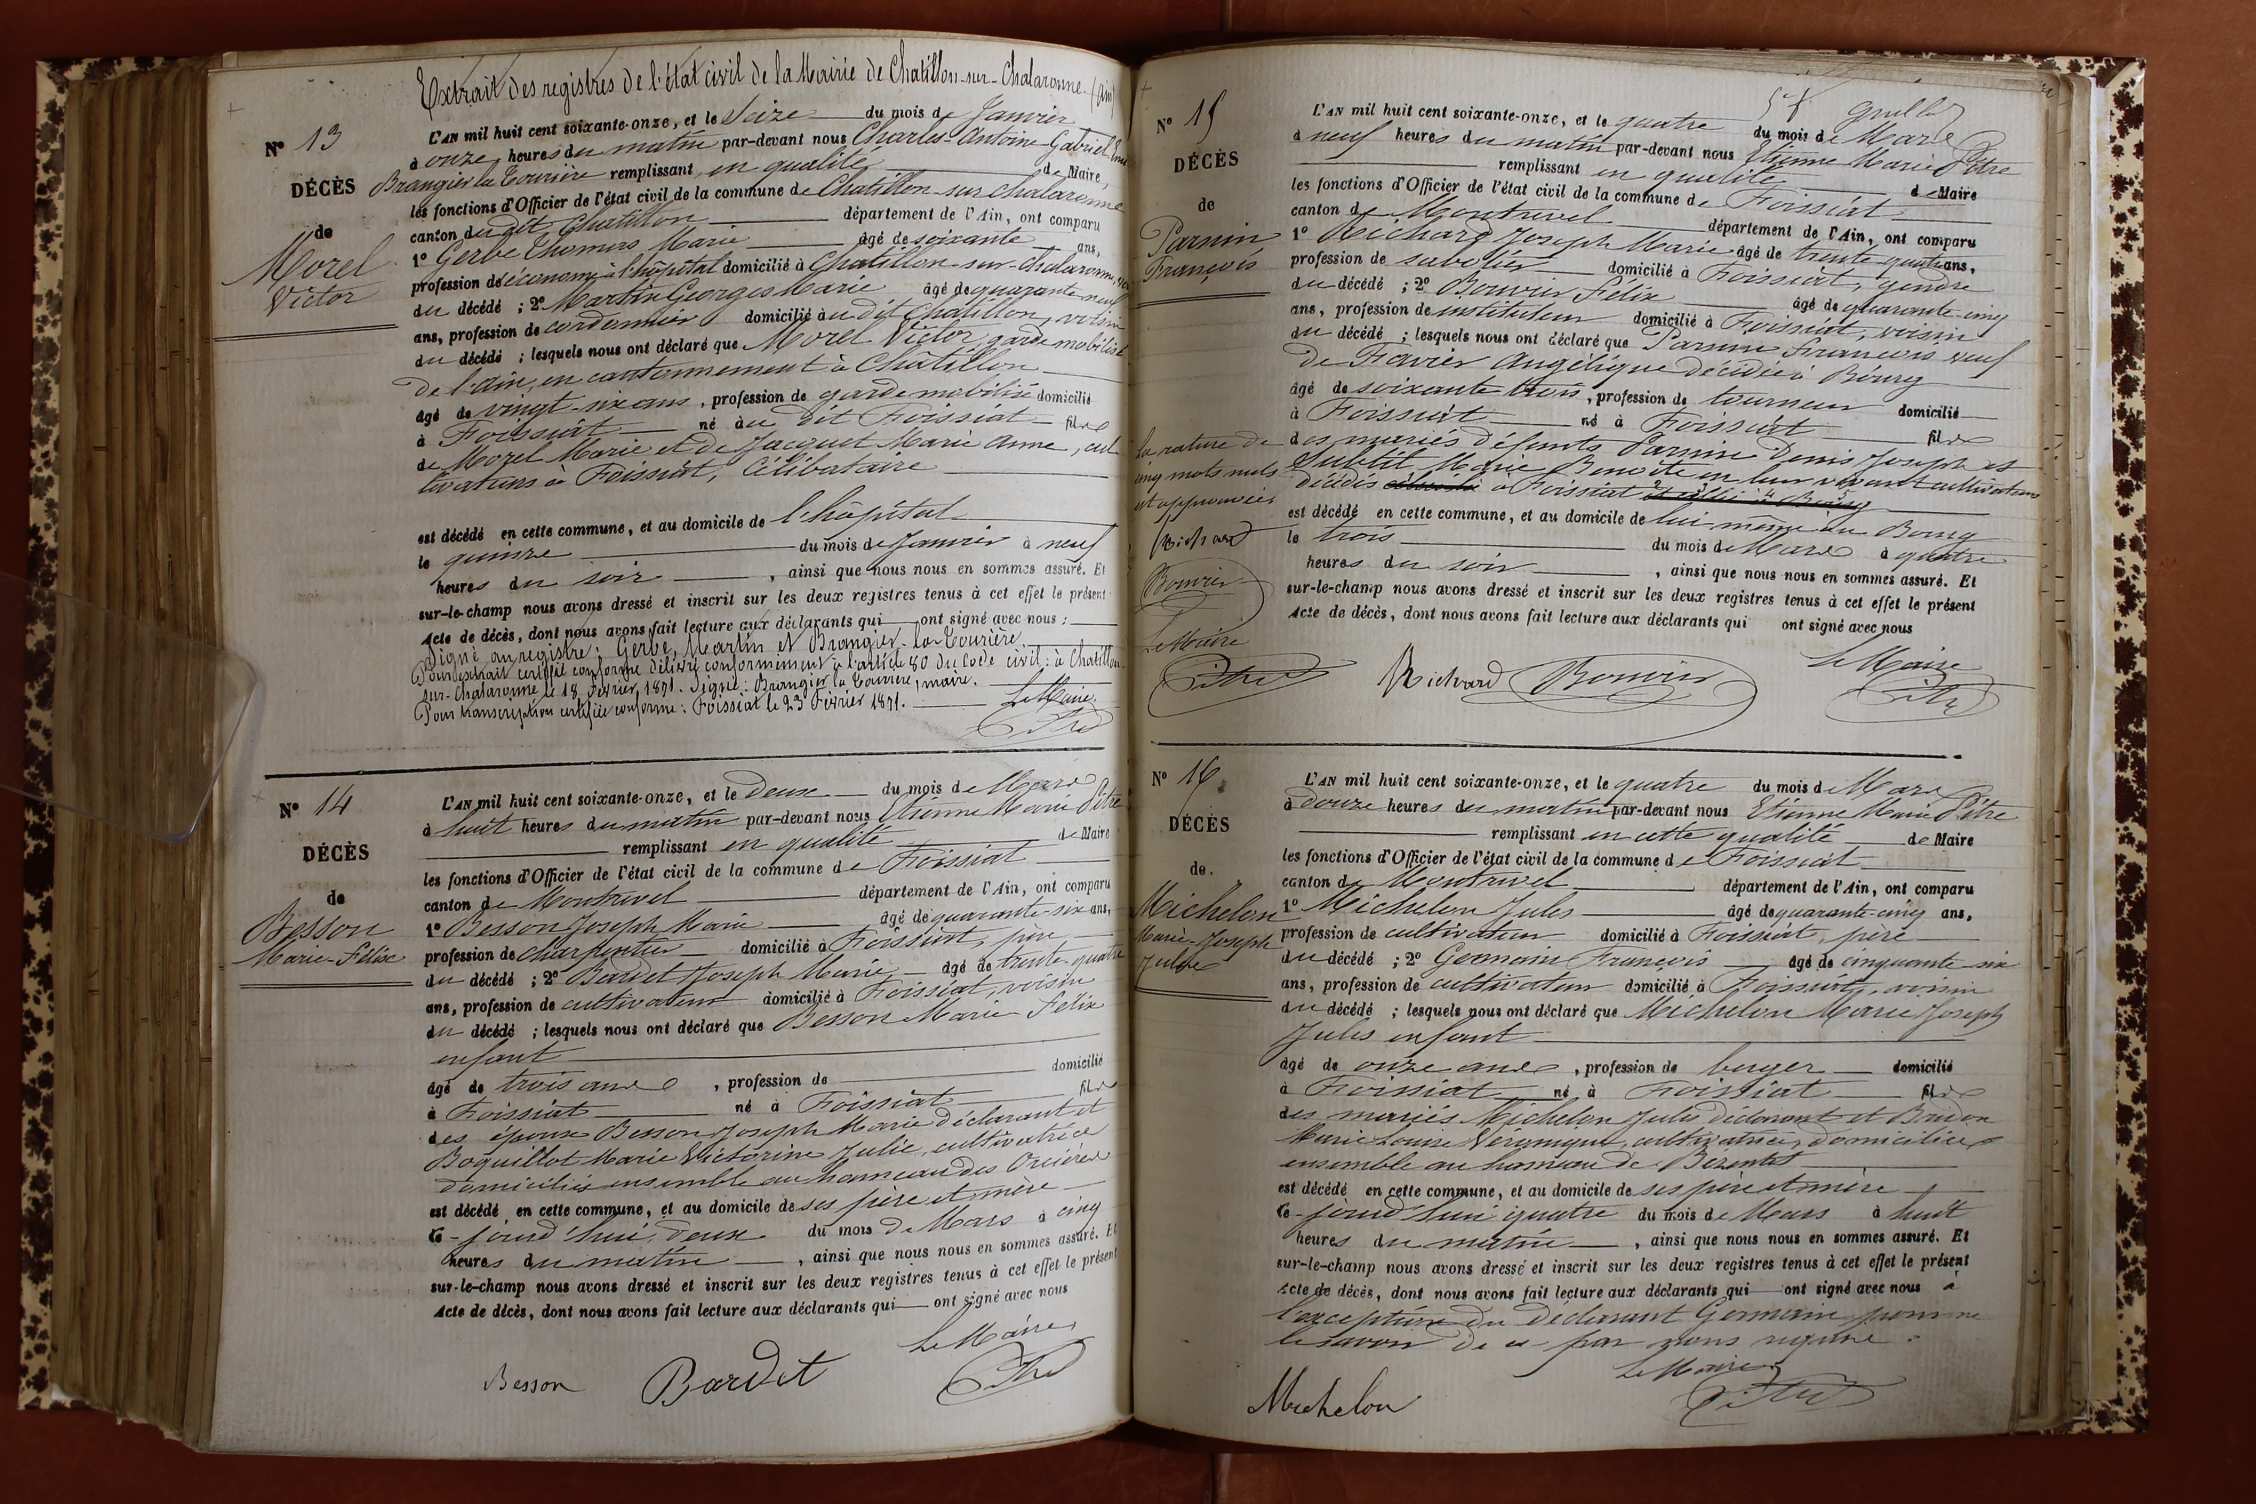 Extrait des registres de l'état civil de la Mairie de Chatillon-sur-Chalaronne (Ain)
N° 13
DÉCÈS
de
Morel
Victor
L'AN mil huit cent soixante-onze, et le Seize du mois de Janvier
à onze heures du matin par-devant nous Charles-Antoine-Gabriel
Brangier la Tourière remplissant en qualité de Maire,
les fonctions d'Officier de l'état civil de la commune de Chatillon-sur-Chalaronne
canton dudit Chatillon département de l'Ain, ont comparu
1° Gerbe Thomas Marie âgé de soixante ans,
profession de économe à l'hôpital domicilié à Chatillon-sur-Chalaronne,
du décédé ; 2° Martin Georges Marie âgé de quarante neuf
ans, profession de cordonnier domicilié au dit Chatillon, voisin
du décédé ; lesquels nous ont déclaré que Morel Victor, garde mobilisé
de l'Ain, en cantonnement à Châtillon
âgé de vingt-six ans, profession de garde mobilisé domicilié
à Foissiat né au dit Foissiat fils
de Morel Marie et de Jacquet Marie Anne, cul
tivateurs à Foissiat, Célibataire
est décédé en cette commune, et au domicile de l'hôpital
le quinze du mois de Janvier à neuf
heures du soir, ainsi que nous nous en sommes assuré. Et
sur-le-champ nous avons dressé et inscrit sur les deux registres tenus à cet effet le présent
Acte de décès, dont nous avons fait lecture aux déclarants qui ont signé avec nous :
Signé au registre : Gerbe, Martin et Brangier la Tourière
Pour extrait certifié conforme délivré conformément à l'article 80 du Code civil : à Chatillon
sur-Chalaronne le 18 Février 1871. Signé : Brangier la Tourière, maire.
Pour transcription certifiée conforme : Foissiat le 23 Février 1871. Le Maire
Pitre
N° 14
DÉCÈS
de
Besson
Marie-Félix
L'AN mil huit cent soixante-onze, et le deux du mois de Mars
à huit heures du matin par-devant nous Etienne Marie Pitre
remplissant en qualité de Maire
les fonctions d'Officier de l'état civil de la commune de Foissiat
canton de Montrevel département de l'Ain, ont comparu
1° Besson Joseph Marie âgé de quarante-six ans,
profession de charpentier domicilié à Foissiat, père
du décédé ; 2° Bardet Joseph Marie, âgé de trente-quatre
ans, profession de cultivateur domicilié à Foissiat, voisin
du décédé ; lesquels nous ont déclaré que Besson Marie Félix
enfant
âgé de trois ans, profession de domicilié
à Foissiat né à Foissiat fils
des époux Besson Joseph Marie déclarant et
Boquillot Marie Victorine Julie, cultivatrice
domiciliés ensemble au hameau des Orcières
est décédé en cette commune, et au domicile de ses père et mère
ce-jourd'hui deux du mois de Mars à cinq
heures du matin, ainsi que nous nous en sommes assuré. Et
sur-le-champ nous avons dressé et inscrit sur les deux registres tenus à cet effet le présent
Acte de décès, dont nous avons fait lecture aux déclarants qui ont signé avec nous
Le Maire
Besson Bardet Pitre
N° 15
DÉCÈS
de
Parnin
François
La rature de
cinq mots nuls
est approuvée
Richard
Bouvier
Le Maire
Pitre
L'AN mil huit cent soixante-onze, et le quatre du mois de Mars
à neuf heures du matin par-devant nous Etienne Marie Pitre
remplissant en qualité de Maire
les fonctions d'Officier de l'état civil de la commune de Foissiat
canton de Montrevel département de l'Ain, ont comparu
1° Richard Joseph Marie âgé de trente-quatre ans,
profession de sabotier domicilié à Foissiat, gendre
du décédé ; 2° Bouvier Félix âgé de quarante-cinq
ans, profession de instituteur domicilié à Foissiat, voisin
du décédé ; lesquels nous ont déclaré que Parnin François veuf
de Favier Angélique décédée à Bourg
âgé de soixante trois, profession de tourneur domicilié
à Foissiat né à Foissiat fils
des mariés défunts Parnin Denis Joseph et
Subtil Marie Benoîte en leur vivant cultivateurs
décédés à Foissiat
est décédé en cette commune, et au domicile de lui même au Bourg
le trois du mois de Mars à quatre
heures du soir, ainsi que nous nous en sommes assuré. Et
sur-le-champ nous avons dressé et inscrit sur les deux registres tenus à cet effet le présent
Acte de décès, dont nous avons fait lecture aux déclarants qui ont signé avec nous
Le Maire
Richard Bouvier Pitre
N° 16
DÉCÈS
de
Michelon
Marie-Joseph
Jules
L'AN mil huit cent soixante-onze, et le quatre du mois de Mars
à douze heures du matin par-devant nous Etienne Marie Pitre
remplissant en cette qualité de Maire
les fonctions d'Officier de l'état civil de la commune de Foissiat
canton de Montrevel département de l'Ain, ont comparu
1° Michelon Jules âgé de quarante-cinq ans,
profession de cultivateur domicilié à Foissiat, père
du décédé ; 2° Germain François âgé de cinquante six
ans, profession de cultivateur domicilié à Foissiat, voisin
du décédé ; lesquels nous ont déclaré que Michelon Marie Joseph
Jules enfant
âgé de onze ans, profession de berger domicilié
à Foissiat né à Foissiat fils
des mariés Michelon Jules déclarant et
Marie Louise Véronique, cultivatrice, domiciliés
ensemble au hameau de Bézentet
est décédé en cette commune, et au domicile de ses père et mère
ce-jourd'hui quatre du mois de Mars à huit
heures du matin, ainsi que nous nous en sommes assuré. Et
sur-le-champ nous avons dressé et inscrit sur les deux registres tenus à cet effet le présent
Acte de décès, dont nous avons fait lecture aux déclarants qui ont signé avec nous à
l'exception du déclarant Germain pour ne
le savoir de ce par nous requis.
Le Maire
Michelon Pitre